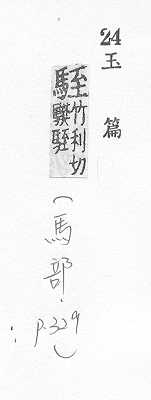 24
玉篇
駤竹利切
（馬部．
p.329）